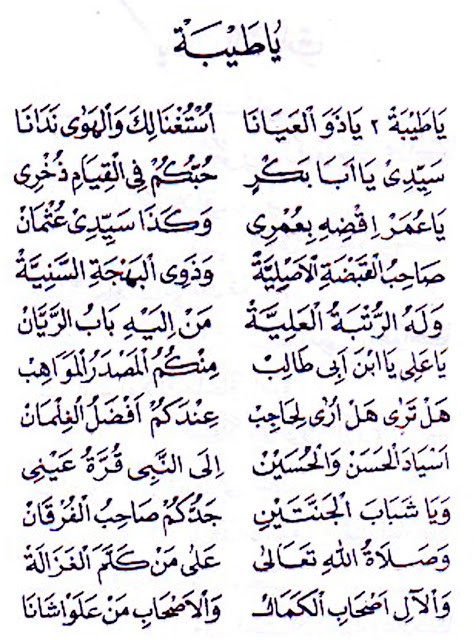 يُاطَيْبَةْ
يَاطَيْبَةْ ٢ يَاذَوَ الْعَيَانَا اُشْتُغْنَالِكَ وَالْهَوٰى نَدَانَا
سَيِّدِىْ يَا اَبَا بَكْرٍ حُبُّكُمْ فِى الْقِيَامِ ذُخْرِى
يَاعُمَرْ اِقْضِهِ بِعُمْرِى وَكَذَا سَيِّدِىْ عُثْمَانْ
صَاحِبُ الْقَبْضَةِ الْاَصْلِيَّةْ وَذَوِى الْبَهْجَةِ السَّنِيَّةْ
وَلَهُ الرُّتْبَةُ الْعَلِيَّةْ مَنْ اِلَيْهِ بَابُ الرَّيَّانْ
يَاعَلِى يَا ابْنَ اَبِى طَالِبْ مِنْكُمُ الْمَصْدَرُ الْمَوَاهِبْ
هَلْ تَرٰى هَلْ اُرٰى لِحَاجِبْ عِنْدَكُمْ اَفْضَلُ الْغِلْمَانْ
اَسْيَادَ الْحَسَنْ وَالْحُسَيْنْ اِلَى النَّبِى قُرَّةُ عَيْنِى
وَيَا شَبَابَ الْجَنَّتَيْنِ جَدُّكُمْ صَاحِبُ الْفُرْقَانْ
وَصَلَاةُ اللهِ تَعَالٰى عَلٰى مَنْ كَلَّمَ الْغَزَالَةْ
وَالْآلِ اَصْحَابِ الْكَمَالْ وَالْاَصْحَابِ مَنْ عَلَوْاشَانَا